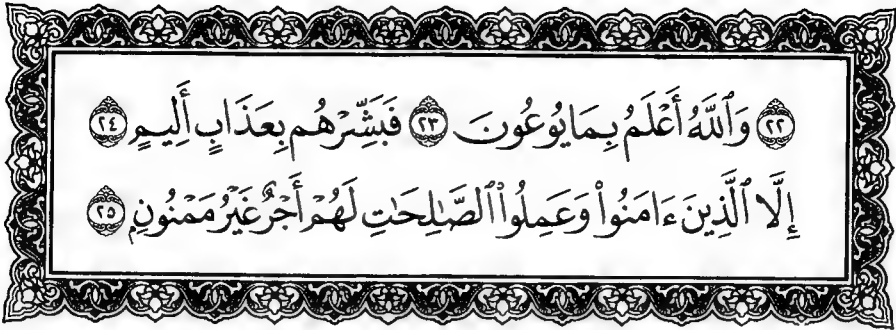 ۝٢٢ وَٱللَّهُ أَعْلَمُ بِمَا يُوعُونَ ۝٢٣ فَبَشِّرْهُم بِعَذَابٍ أَلِيمٍ ۝٢٤
إِلَّا ٱلَّذِينَ ءَامَنُوا۟ وَعَمِلُوا۟ ٱلصَّـٰلِحَـٰتِ لَهُمْ أَجْرٌ غَيْرُ مَمْنُونٍۭ ۝٢٥